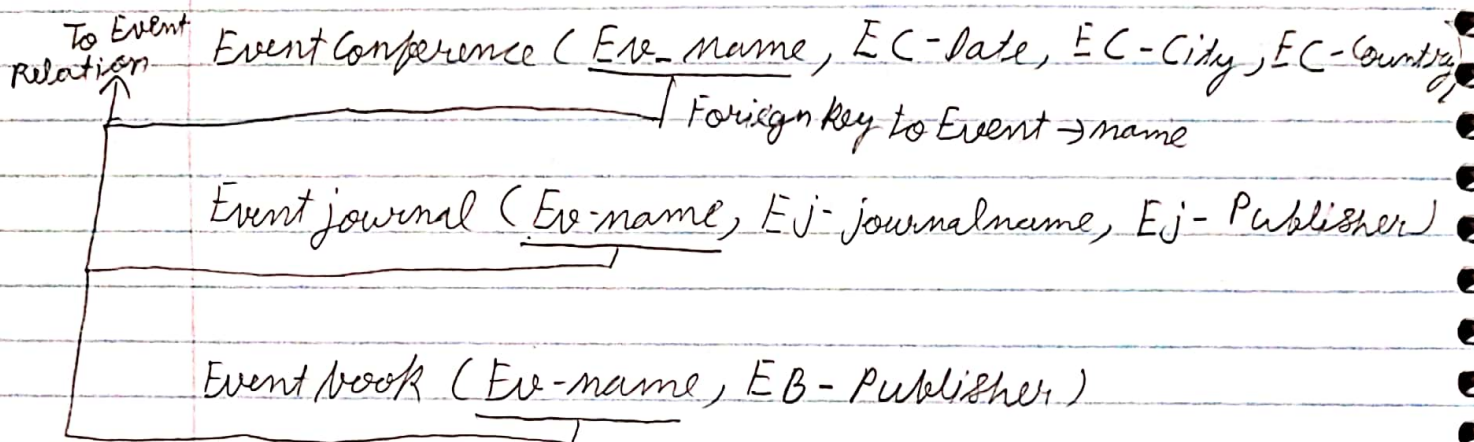 To Event
Relation
EventConference (Ev_name, EC-Date, EC-City, EC-Country)
Foriegn key to Event → name
Event journal (Ev-name, Ej-journalname, Ej-Publisher)
Event book (Ev-name, EB-Publisher)